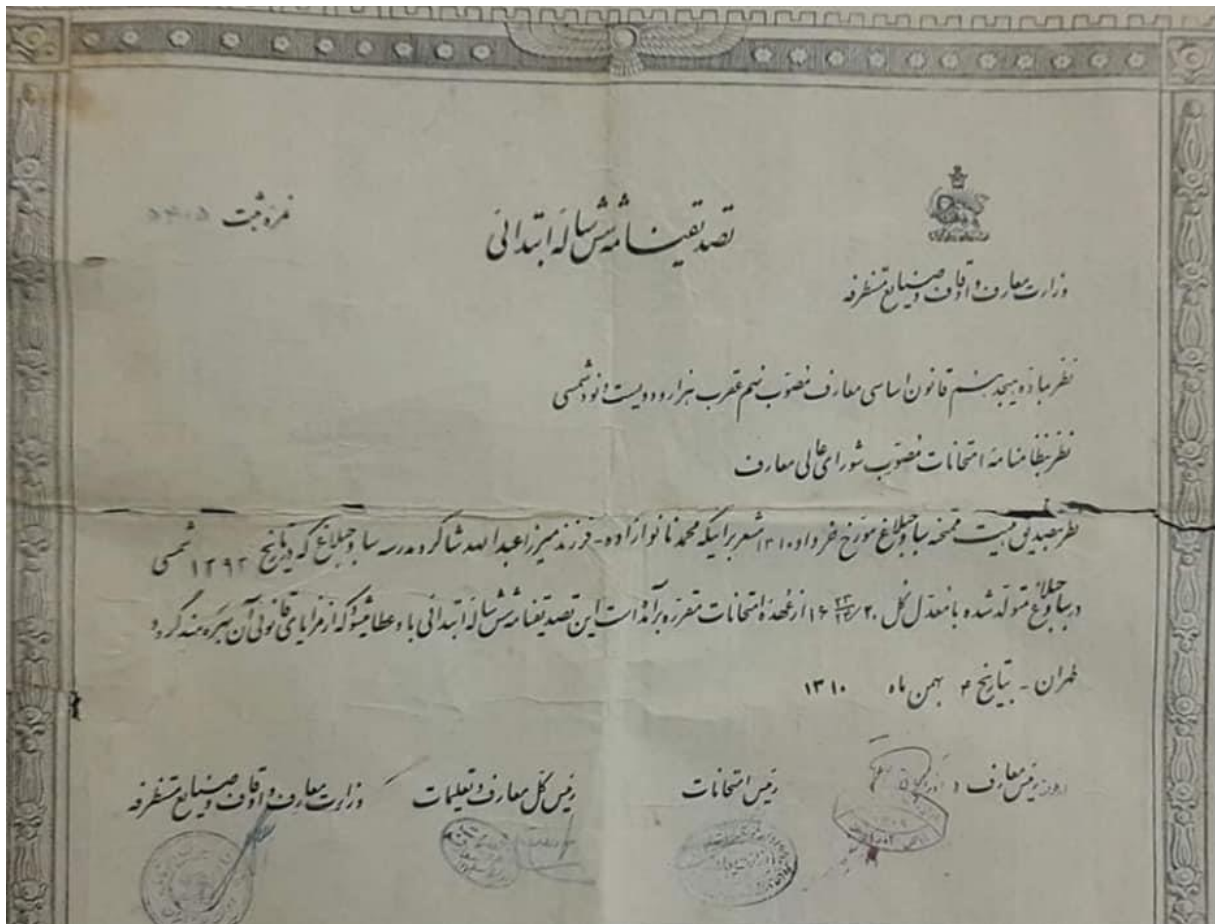 تصدیقنامه شش ساله ابتدائی
نمره ثبت ۵۴۰۵
وزارت معارف و اوقاف و صنایع مستظرفه
نظر بماده هیجدهم قانون اساسی معارف مصوب نهم عقرب هزار و دویست و نود شمسی
نظر بنظامنامه امتحانات مصوب شورای عالی معارف
نظر بتصدیق هیئت ممتحنه ساوجبلاغ مورخ خرداد ۱۳۱۰ مشعر براینکه محمد نانوازاده - فرزند میرزا عبدالله شاگرد مدرسه ساوجبلاغ که در تاریخ ۱۲۹۲ شمسی
در ساوجبلاغ متولد شده با معدل کل ۱۶ از عهده امتحانات مقرره برآمده است این تصدیقنامه شش ساله ابتدائی باو عطا میشود که از مزایای قانونی آن بهره مند گردد
طهران - بتاریخ ۴ بهمن ماه ۱۳۱۰
رئیس معارف و
رئیس امتحانات
رئیس کل معارف و تعلیمات
وزارت معارف و اوقاف و صنایع مستظرفه